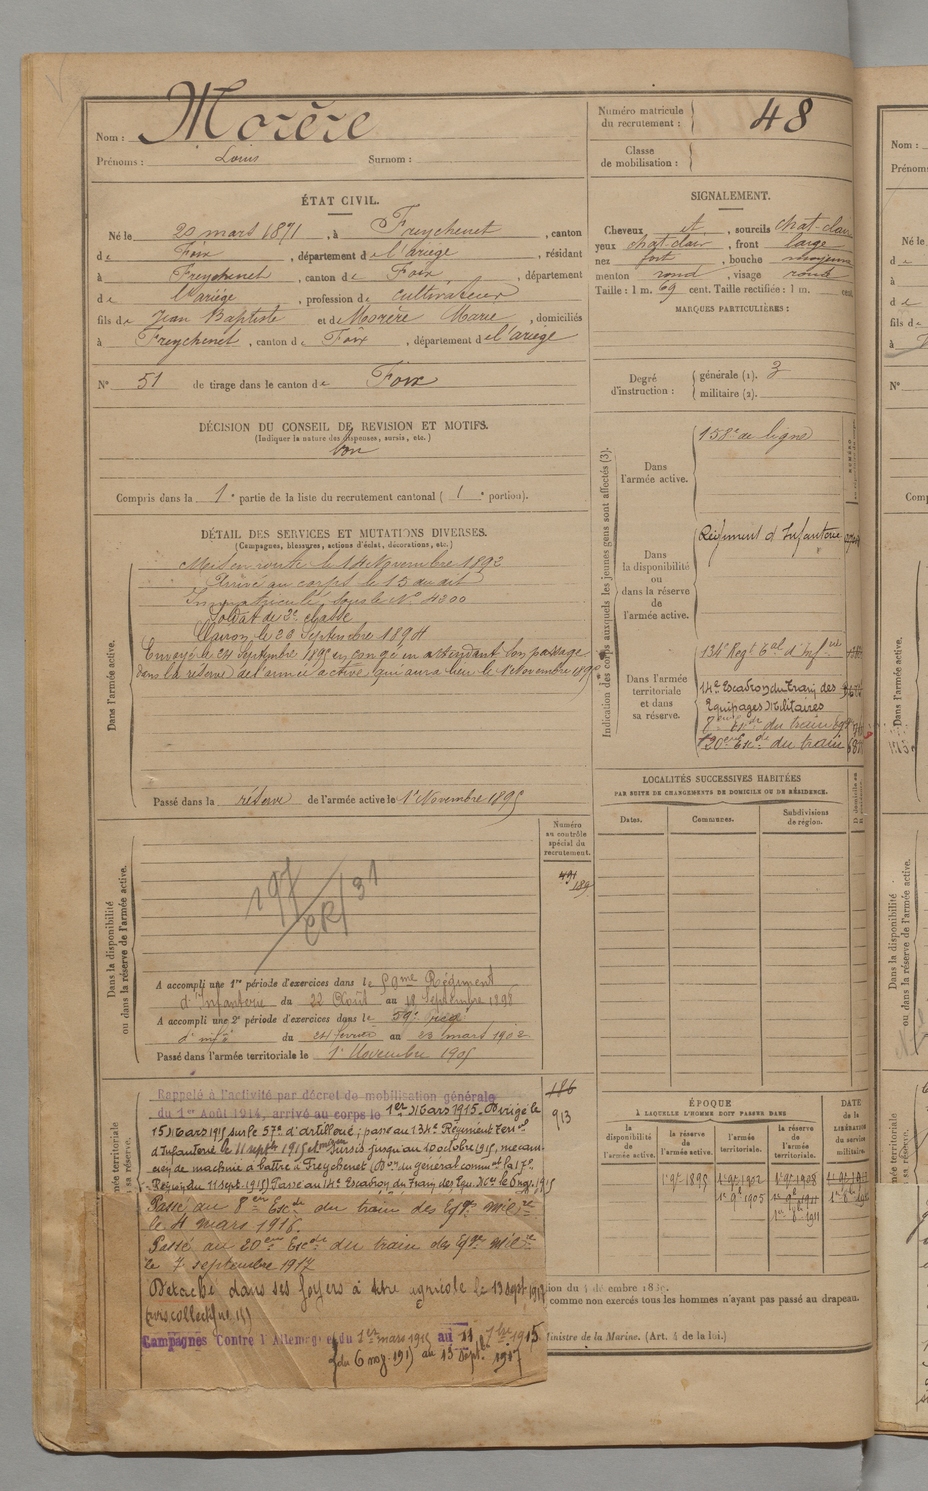 Nom : Morère
Prénoms : Louis Surnom :
Numéro matricule du recrutement : 48
Classe de mobilisation :
ÉTAT CIVIL.
Né le 20 mars 1871, à Freychenet, canton
de Foix, département de l'ariège, résidant
à Freychenet, canton de Foix, département
de l'ariège, profession de cultivateur
fils de Jean Baptiste et de Morère Marie, domiciliés
à Freychenet, canton de Foix, département de l'ariège
N° 51 de tirage dans le canton de Foix
SIGNALEMENT.
Cheveux et, sourcils chat-clair
yeux chat-clair, front large
nez fort, bouche moyenne
menton rond, visage rond
Taille : 1 m. 69 cent. Taille rectifiée : 1 m. cent.
MARQUES PARTICULIÈRES :
Degré d'instruction : générale (1). 3
militaire (2).
DÉCISION DU CONSEIL DE REVISION ET MOTIFS.
(Indiquer la nature des dispenses, sursis, etc.)
bon
Compris dans la 1e partie de la liste du recrutement cantonal (1e portion).
DÉTAIL DES SERVICES ET MUTATIONS DIVERSES.
(Campagnes, blessures, actions d'éclat, décorations, etc.)
Dans l'armée active.
Mis en route le 14 Novembre 1892
Arrivé au corps le 15 du dit
Immatriculé sous le N° 4300
Soldat de 2e classe
Clairon le 20 Septembre 1894
Envoyé le 24 Septembre 1895 en congé en attendant son passage
dans la réserve de l'armée active qui aura lieu le 1er Novembre 1895
Passé dans la réserve de l'armée active le 1er Novembre 1895
Indication des corps auxquels les jeunes gens sont affectés (3).
Dans l'armée active. 158e de ligne
Dans la disponibilité ou dans la réserve de l'armée active. Régiment d'Infanterie
Dans l'armée territoriale et dans sa réserve. 134e Regt Tal d'Infrie
14e Escadron du Train des
Equipages Militaires
8eme Excon du train
20eme Excon du train
LOCALITÉS SUCCESSIVES HABITÉES
PAR SUITE DE CHANGEMENTS DE DOMICILE OU DE RÉSIDENCE.
Dates. Communes. Subdivisions de région.
Dans la disponibilité ou dans la réserve de l'armée active.
Numéro au contrôle spécial du recrutement.
197
CR/31
A accompli une 1re période d'exercices dans le 59me Régiment
d'Infanterie du 22 Août au 18 Septembre 1898
A accompli une 2e période d'exercices dans le 59e
d'infie du 24 février au 23 mars 1902
Passé dans l'armée territoriale le 1er Novembre 1905
186
913
Rappelé à l'activité par décret de mobilisation générale
du 1er Août 1914, arrivé au corps le 1er Mars 1915. Dirigé le
15 Mars 1915 sur le 57e d'artillerie ; passé au 134e Régiment Terial
d'Infanterie le 11 septbre 1915 et mis en sursis jusqu'au 10 octobre 1915, mecani-
cien de machine à battre à Freychenet (Bon du général commt la 17e
Région du 11 sept. 1915) Passé au 14e Escadron du Train des Equ. Mres le 6 nov. 1915
Passé au 8eme Excon du train des Eqges milres
le 4 mars 1916.
Passé au 20eme Excon du train des Eqges milres
le 7 septembre 1917
Détaché dans ses foyers à titre agricole le 13 Sept 1917
Campagnes Contre l'Allemagne du 1er mars 1915 au 11 7bre 1915
du 6 nov. 1915 au 13 Septe 1917
ÉPOQUE
À LAQUELLE L'HOMME DOIT PASSER DANS
la disponibilité de l'armée active. la réserve de l'armée active. l'armée territoriale. la réserve de l'armée territoriale.
DATE de la LIBÉRATION du service militaire.
1er 9bre 1895 1er 9bre 1902 1er 9bre 1908
1er 9bre 1905 1er 9bre 1911
1er 8bre 1911
comme non exercés tous les hommes n'ayant pas passé au drapeau.
Ministre de la Marine. (Art. 4 de la loi.)